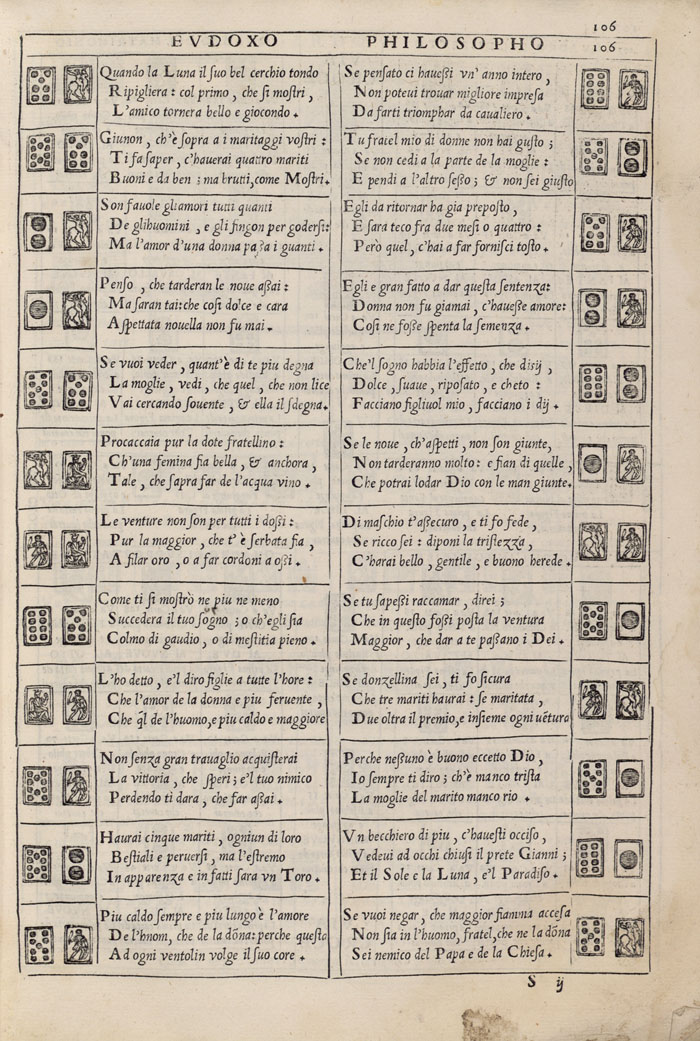 106
EVDOXO PHILOSOPHO 106
Quando la Luna il suo bel cerchio tondo
Ripigliera: col primo, che si mostri,
L'amico tornera bello e giocondo.
Giunon, ch'è sopra a i maritaggi vostri:
Ti fa saper, c'hauerai quattro mariti
Buoni e da ben; ma brutti, come Mostri.
Son fauole gli amori tutti quanti
De gli huomini, e gli fingon per godersi:
Ma l'amor d'una donna passa i guanti.
Penso, che tarderan le noue assai:
Ma saran tai: che cosi dolce e cara
Aspettata nouella non fu mai.
Se vuoi veder, quant'è di te piu degna
La moglie, vedi, che quel, che non lice
Vai cercando souente, & ella il sdegna.
Procaccaia pur la dote fratellino:
Ch'una femina fia bella, & anchora,
Tale, che sapra far de l'acqua vino.
Le venture non son per tutti i dossi:
Pur la maggior, che t'è serbata fia,
A filar oro, o a far cordoni a ossi.
Come ti si mostrò ne piu ne meno
Succedera il tuo sogno; o ch'egli sia
Colmo di gaudio, o di mestitia pieno.
L'ho detto, e'l diro figlie a tutte l'hore:
Che l'amor de la donna e piu feruente,
Che q̃l de l'huomo, e piu caldo e maggiore
Non senza gran trauaglio acquisterai
La vittoria, che speri; e'l tuo nimico
Perdendo ti dara, che far assai.
Haurai cinque mariti, ogniun di loro
Bestiali e peruersi, ma l'estremo
In apparenza e in fatti sara vn Toro.
Piu caldo sempre e piu lungo è l'amore
De l'hnom, che de la dõna: perche questa
Ad ogni ventolin volge il suo core.
Se pensato ci hauessi vn' anno intero,
Non poteui trouar migliore impresa
Da farti triomphar da caualiero.
Tu fratel mio di donne non hai gusto;
Se non cedi a la parte de la moglie:
E pendi a l'altro sesso; & non sei giusto
Egli da ritornar ha gia preposto,
E sara teco fra due mesi o quattro:
Però quel, c'hai a far fornisci tosto.
Egli e gran fatto a dar questa sentenza:
Donna non fu giamai, c'hauesse amore:
Cosi ne fosse spenta la semenza.
Che'l sogno habbia l'effetto, che disij,
Dolce, suaue, riposato, e cheto:
Facciano figliuol mio, facciano i dij.
Se le noue, ch'aspetti, non son giunte,
Non tarderanno molto: e fian di quelle,
Che potrai lodar Dio con le man giunte.
Di maschio t'assecuro, e ti fo fede,
Se ricco sei: diponi la tristezza,
C'harai bello, gentile, e buono herede.
Se tu sapessi raccamar, direi;
Che in questo fossi posta la ventura
Maggior, che dar a te passano i Dei.
Se donzellina sei, ti fo sicura
Che tre mariti haurai: se maritata,
Due oltra il premio, e insieme ogni uẽtura
Perche nessuno è buono eccetto Dio,
Io sempre ti diro; ch'è manco trista
La moglie del marito manco rio.
Vn becchiero di piu, c'hauesti occiso,
Vedeui ad occhi chiusi il prete Gianni;
Et il Sole e la Luna, e'l Paradiso.
Se vuoi negar, che maggior fiamma accesa
Non sia in l'huomo, fratel, che ne la dõna
Sei nemico del Papa e de la Chiesa.
S ij